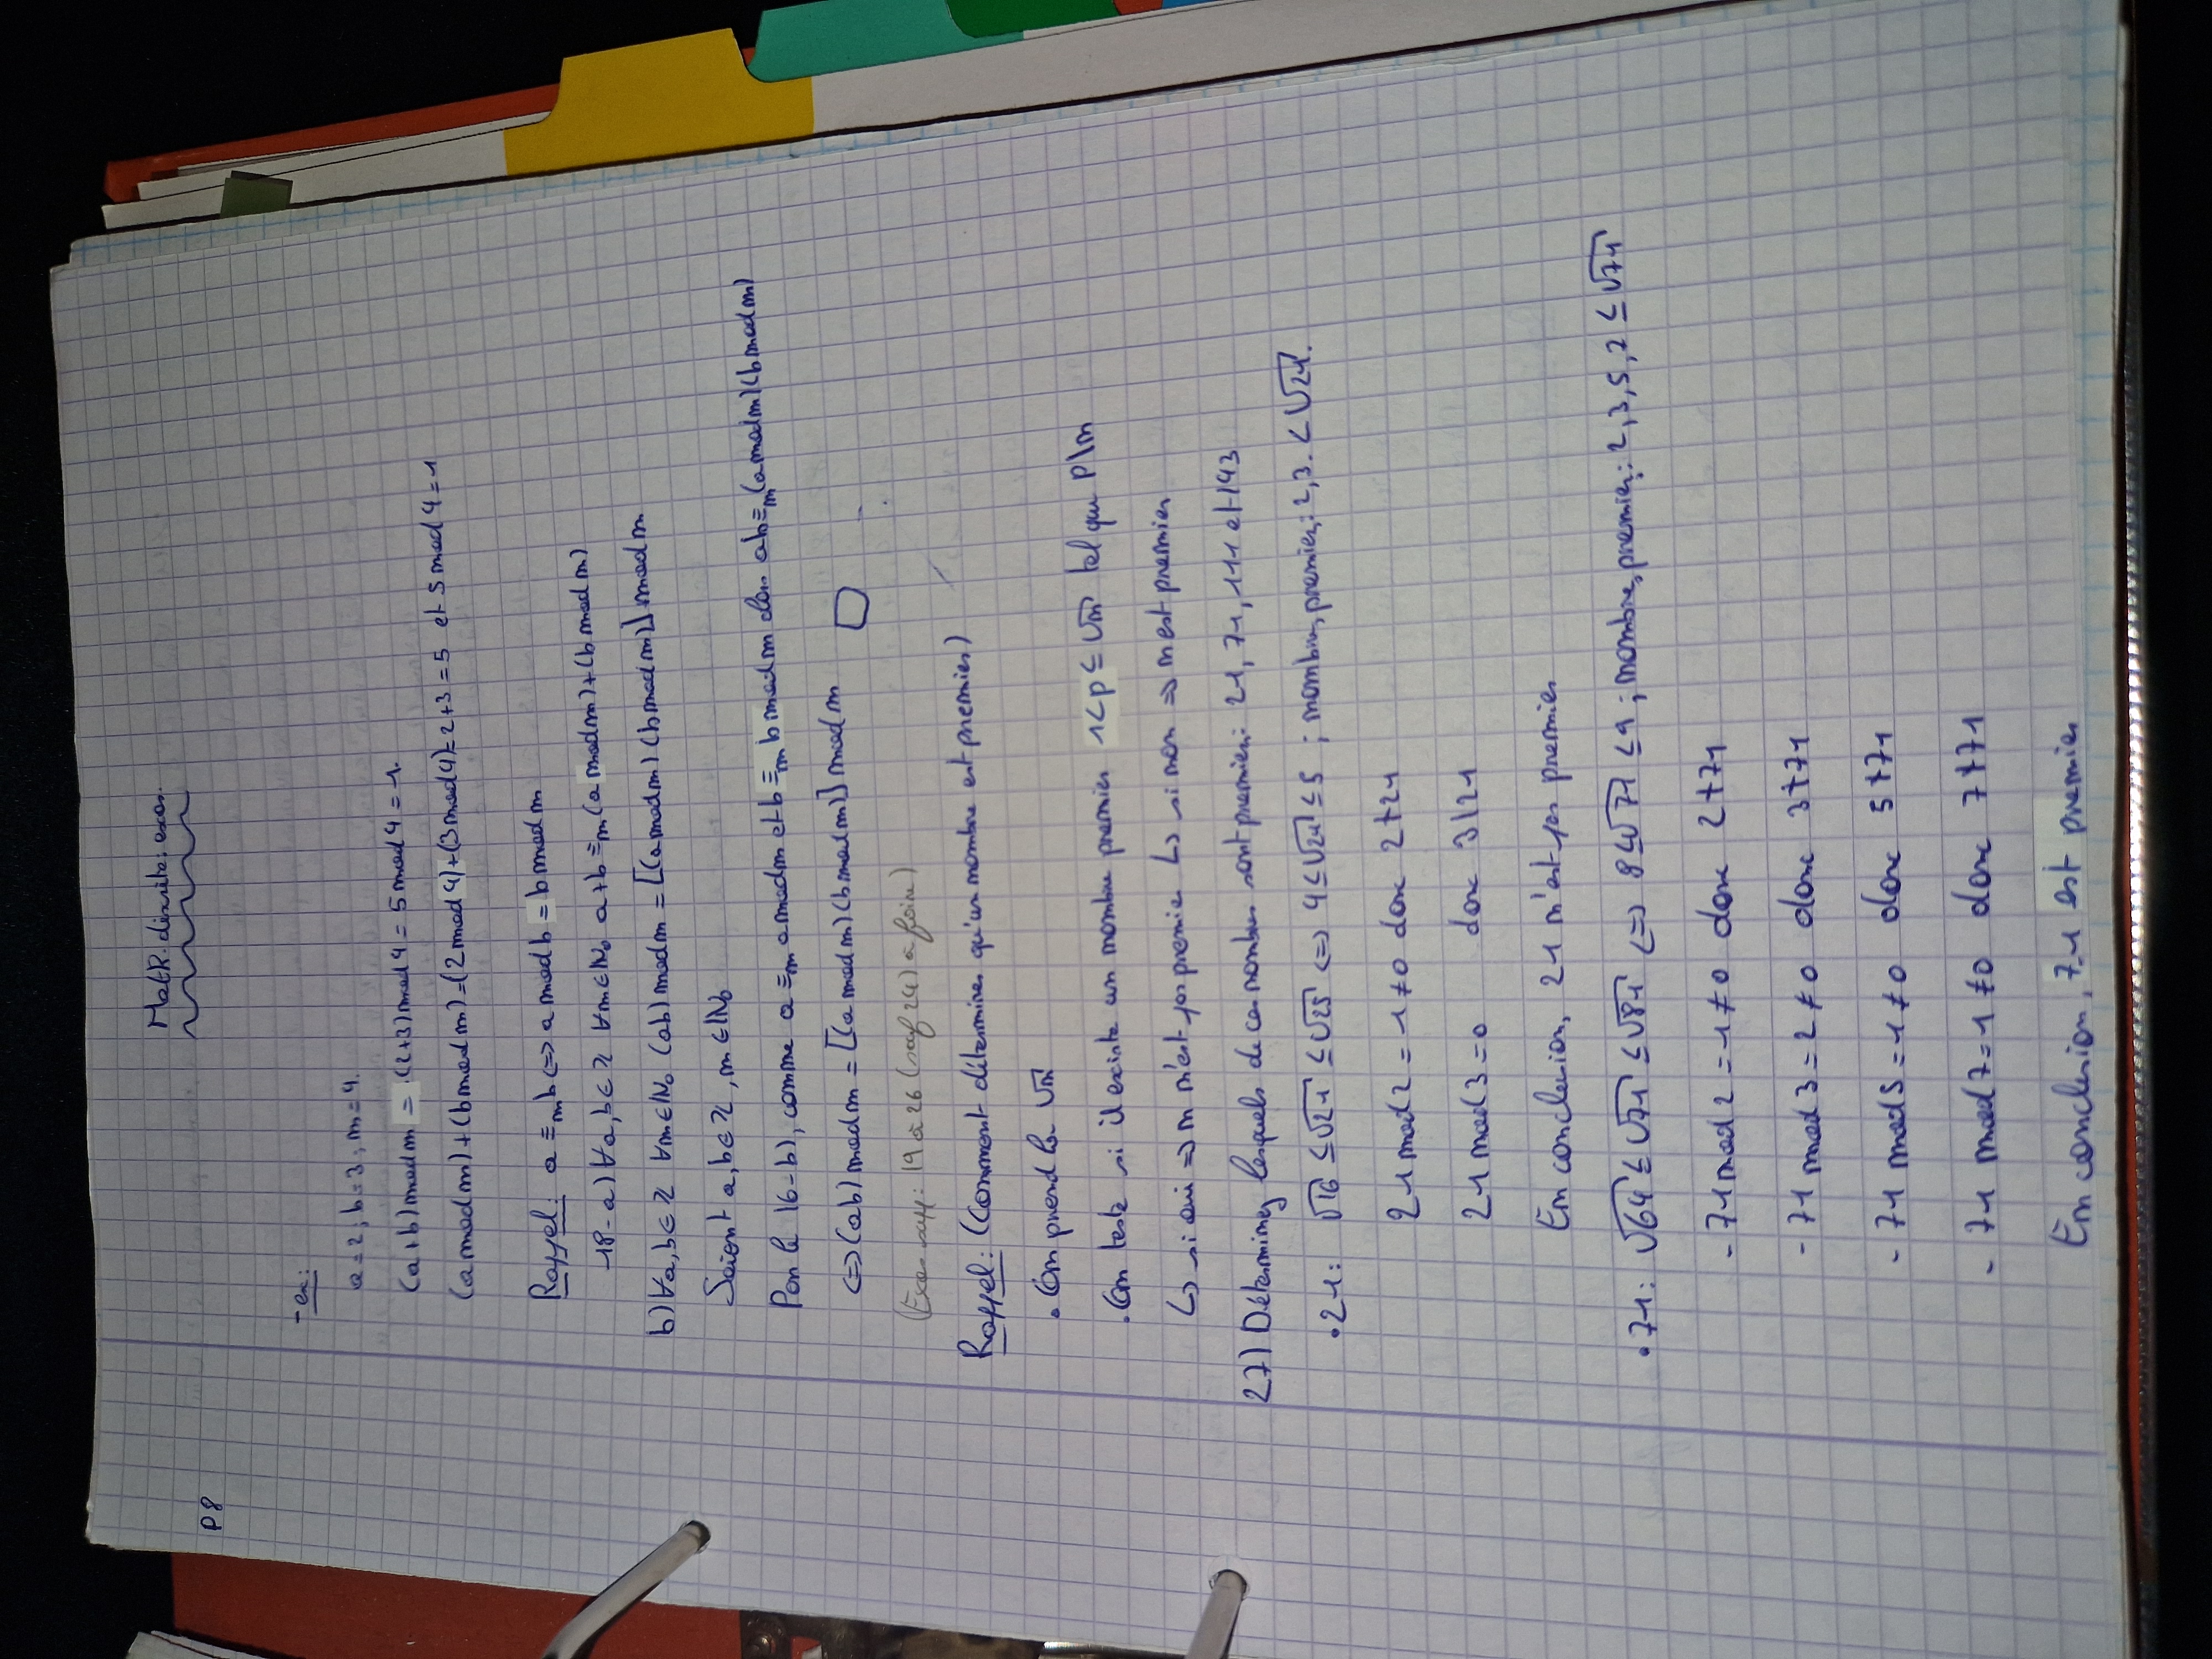 Math. discrète: exos.
P8
- ex:
a = 2 ; b = 3 ; m = 4.
(a+b) mod m = (2+3) mod 4 = 5 mod 4 = 1.
(a mod m) + (b mod m) = (2 mod 4) + (3 mod 4) = 2+3 = 5 et 5 mod 4 = 1
Rappel: a ≡ₘ b <=> a mod b = b mod m
18 - a) ∀a,b ∈ ℤ ∀m ∈ ℕ₀ a+b ≡ₘ (a mod m) + (b mod m)
b) ∀a,b ∈ ℤ ∀m ∈ ℕ₀ (ab) mod m = [(a mod m) (b mod m)] mod m
Soient a,b ∈ ℤ , m ∈ ℕ₀
Par le 16-b), comme a ≡ₘ a mod m et b ≡ₘ b mod m alors ab ≡ₘ (a mod m) (b mod m)
<=> (ab) mod m = [(a mod m) (b mod m)] mod m □
(Exos supp: 19 à 26 (sauf 24) à faire)
Rappel: (Comment déterminer qu'un nombre est premier)
• On prend la √n
• On teste si il existe un nombre premier 1 < p ≤ √n tel que p\n
↳ si oui => n n'est pas premier ↳ si non => n est premier
27) Déterminez lesquels de ces nombres sont premiers: 21, 71, 111 et 143
• 21: √16 ≤ √21 ≤ √25 <=> 4 ≤ √21 ≤ 5 ; nombres premiers: 2, 3. < √21.
21 mod 2 = 1 ≠ 0 donc 2 ∤ 21
21 mod 3 = 0 donc 3 | 21
En conclusion, 21 n'est pas premier
• 71: √64 ≤ √71 ≤ √81 <=> 8 ≤ √71 ≤ 9 ; nombres premiers: 2, 3, 5, 7 ≤ √71
- 71 mod 2 = 1 ≠ 0 donc 2 ∤ 71
- 71 mod 3 = 2 ≠ 0 donc 3 ∤ 71
- 71 mod 5 = 1 ≠ 0 donc 5 ∤ 71
- 71 mod 7 = 1 ≠ 0 donc 7 ∤ 71
En conclusion, 71 est premier